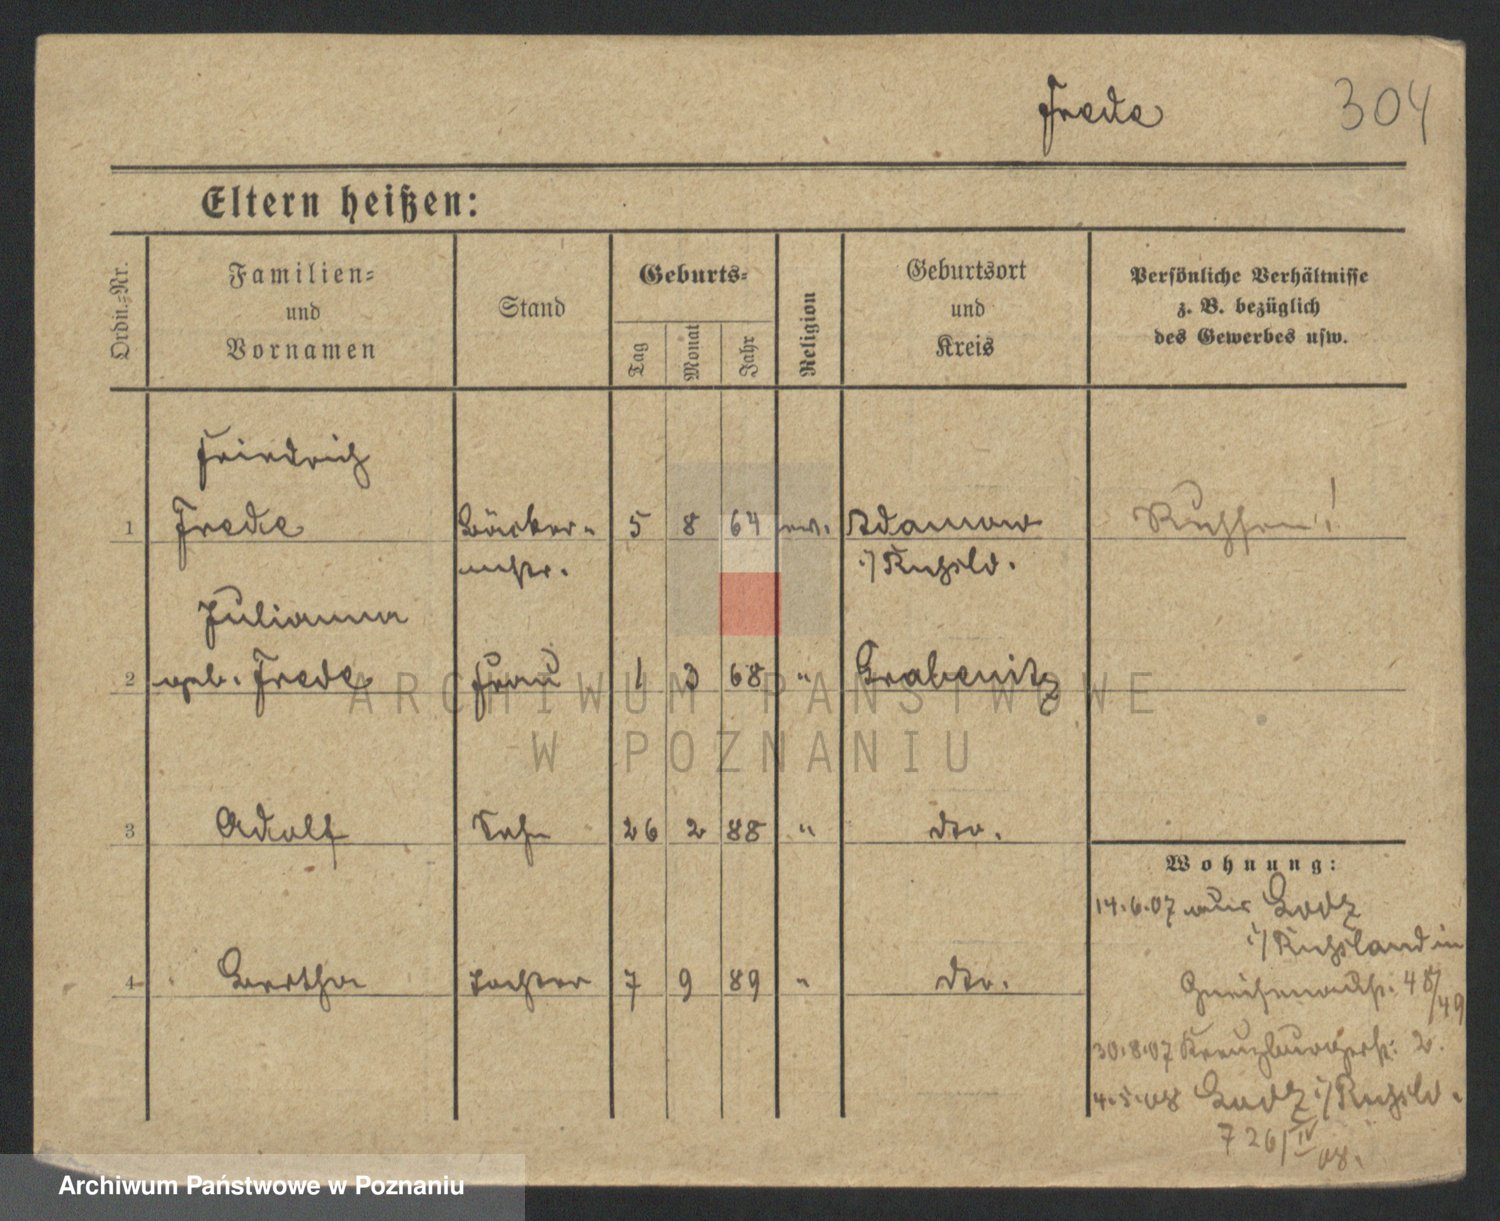 Frede
304
Eltern heißen:
Ordn.-Nr.
Familien-
und
Vornamen
Stand
Geburts-
Tag
Monat
Jahr
Religion
Geburtsort
und
Kreis
Persönliche Verhältnisse
z. B. bezüglich
des Gewerbes usw.
Friedrich
1 Frede Bäcker- 5 8 64 ev. Adamow Russen!
mstr. i/Rußld.
Julianna
2 geb. Frede Frau 1 3 68 " Grabenitz
3 Adolf Sohn 26 2 88 " dto.
Wohnung:
14.6.07 aus Lodz
i/Rußland in
4 Bertha Tochter 7 9 89 " dto.
Gneisenaustr. 48/49
30.8.07 Kreuzburgerstr. 2.
4.5.08 Lodz i/Rußld.
7 26/IV 08.
ARCHIWUM PAŃSTWOWE
W POZNANIU
Archiwum Państwowe w Poznaniu